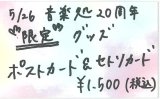 5/26 音楽処 20周年
"限定" グッズ
ポストカード&セトリカード
¥1,500(税込)